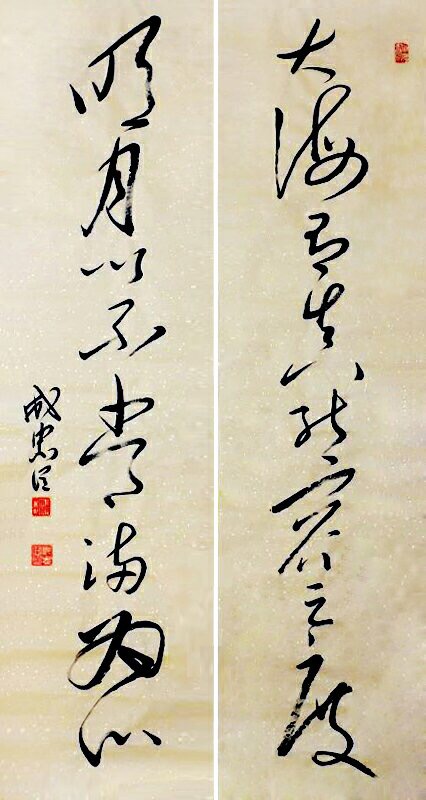 大海有真能容之度
明月以不常满为心
成忠臣